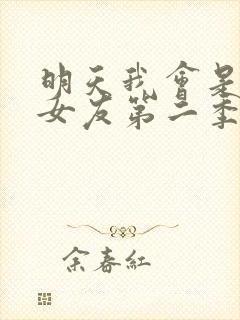 明天我會是
女友第二季
余春紅